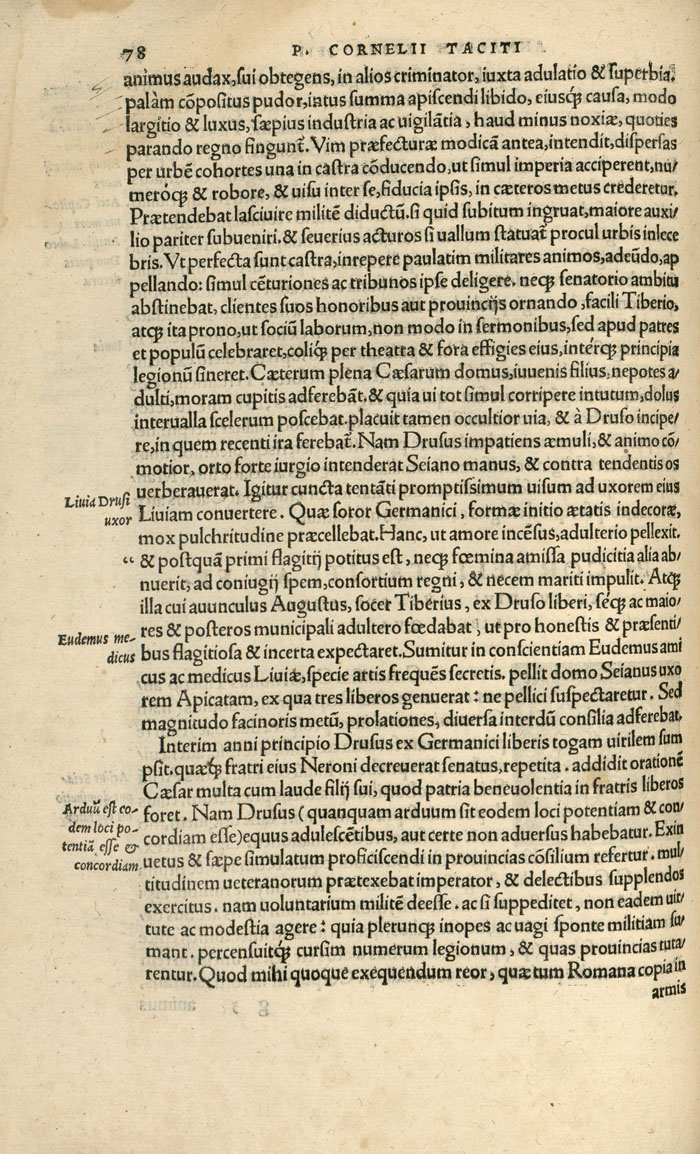 78 P. CORNELII TACITI
animus audax, sui obtegens, in alios criminator, iuxta adulatio & superbia.
palàm cõpositus pudor, intus summa apiscendi libido, eiusq́; causa, modo
largitio & luxus, sæpius industria ac uigilãtia, haud minus noxiæ, quoties
parando regno fingunt᷑. Vim præfecturæ modicã antea, intendit, dispersas
per urbẽ cohortes una in castra cõducendo, ut simul imperia acciperent, nu/
meróq́; & robore, & uisu inter se, fiducia ipsis, in cæteros metus crederetur.
Prætendebat lasciuire militẽ diductũ. si quid subitum ingruat, maiore auxi/
lio pariter subueniri. & seuerius acturos si uallum statuat᷑ procul urbis inlece
bris. Vt perfecta sunt castra, inrepere paulatim militares animos, adeũdo, ap
pellando: simul cẽturiones ac tribunos ipse deligere. neq; senatorio ambitu
abstinebat, clientes suos honoribus aut prouincijs ornando, facili Tiberio,
atq; ita prono, ut sociũ laborum, non modo in sermonibus, sed apud patres
et populũ celebraret, coliq́; per theatra & fora effigies eius, intérq; principia
legionũ sineret. Cæterum plena Cæsarum domus, iuuenis filius, nepotes a/
dulti, moram cupitis adferebãt. & quia ui tot simul corripere intutum, dolus
interualla scelerum poscebat. placuit tamen occultior uia, & à Druso incipe/
re, in quem recenti ira ferebat᷑. Nam Drusus impatiens æmuli, & animo cõ/
motior, orto forte iurgio intenderat Seiano manus, & contra tendentis os
uerberauerat. Igitur cuncta tentãti promptissimum uisum ad uxorem eius
Liuia Drusi
uxor
Liuiam conuertere. Quæ soror Germanici, formæ initio ætatis indecoræ,
mox pulchritudine præcellebat. Hanc, ut amore incẽsus, adulterio pellexit.
“ & postquã primi flagitij potitus est, neq; fœmina amissa pudicitia alia ab/
nuerit, ad coniugij spem, consortium regni, & necem mariti impulit. Atq;
illa cui auunculus Augustus, socer Tiberius, ex Druso liberi, séq; ac maio/
res & posteros municipali adultero fœdabat, ut pro honestis & præsenti/
Eudemus me-
dicus
bus flagitiosa & incerta expectaret. Sumitur in conscientiam Eudemus ami
cus ac medicus Liuiæ, specie artis frequẽs secretis. pellit domo Seianus uxo
rem Apicatam, ex qua tres liberos genuerat: ne pellici suspectaretur. Sed
magnitudo facinoris metũ, prolationes, diuersa interdũ consilia adferebat.
Interim anni principio Drusus ex Germanici liberis togam uirilem sum
psit. quæq́; fratri eius Neroni decreuerat senatus, repetita. addidit orationẽ
Cæsar multa cum laude filij sui, quod patria beneuolentia in fratris liberos
Arduũ est eo-
dem loci po-
tentiã esse &
concordiam
foret. Nam Drusus (quanquam arduum sit eodem loci potentiam & con/
cordiam esse) equus adulescẽtibus, aut certe non aduersus habebatur. Exin
uetus & sæpe simulatum proficiscendi in prouincias cõsilium refertur. mul/
titudinem ueteranorum prætexebat imperator, & delectibus supplendos
exercitus. nam uoluntarium militẽ deesse. ac si suppeditet, non eadem uir/
tute ac modestia agere: quia plerunq; inopes ac uagi sponte militiam su/
mant. percensuitq́; cursim numerum legionum, & quas prouincias tuta/
rentur. Quod mihi quoque exequendum reor, quæ tum Romana copia in
armis